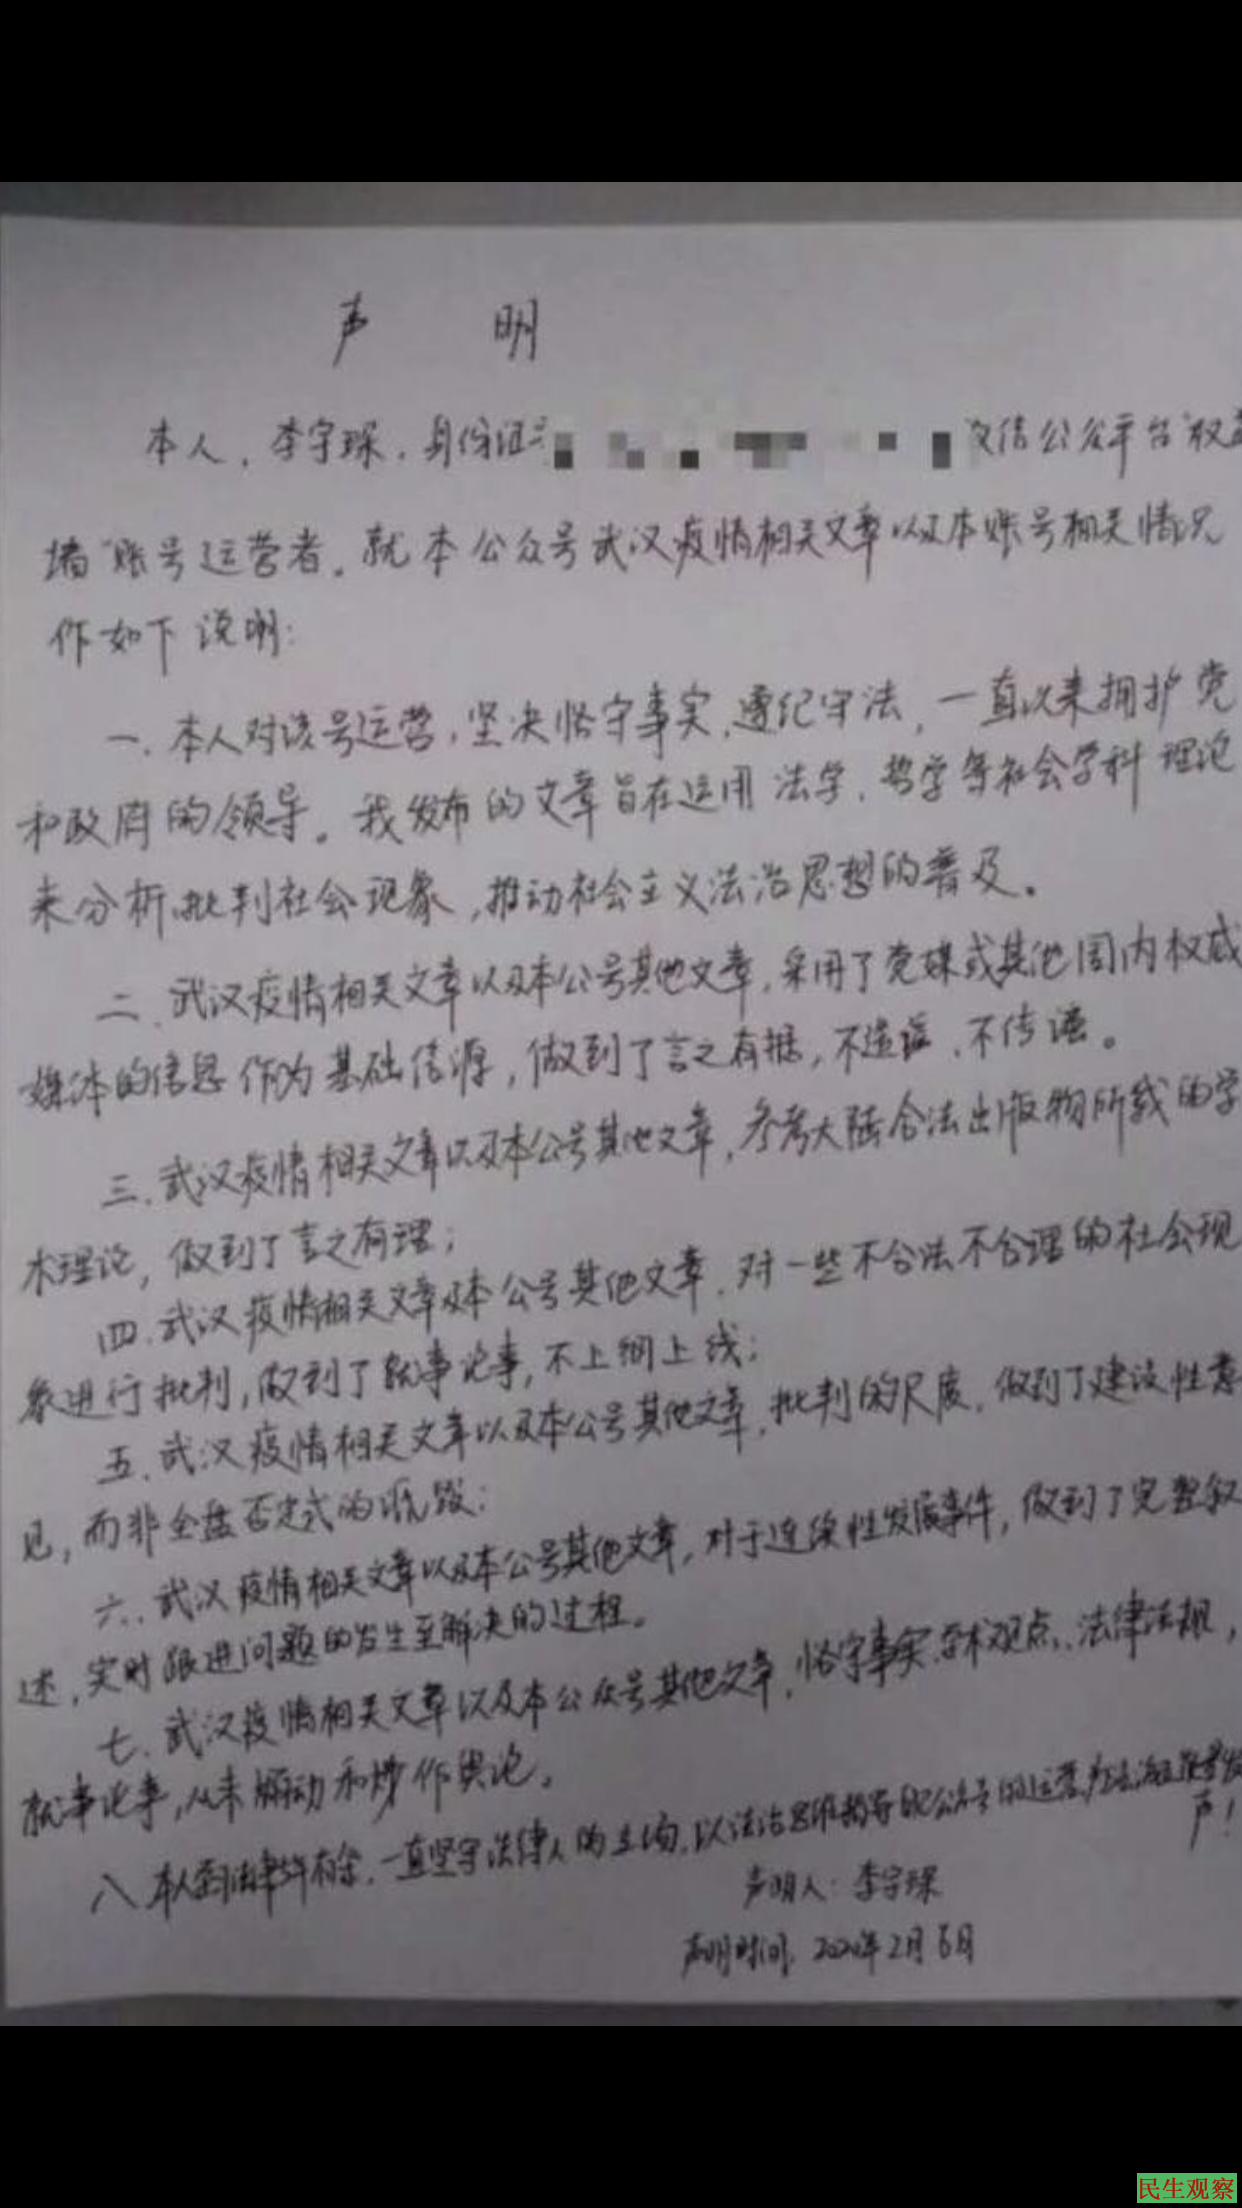 声 明
本人，李宇琛，身份证号 微信公众平台“权益
墙”账号运营者。就本公众号武汉疫情相关文章以及本账号相关情况
作如下说明：
一、本人对该号运营，坚决恪守事实、遵纪守法，一直以来拥护党
和政府的领导。我发布的文章旨在运用法学、哲学等社会学科理论
来分析、批判社会现象，推动社会主义法治思想的普及。
二、武汉疫情相关文章以及本公号其他文章，采用了党媒或其他国内权威
媒体的信息作为基础信源，做到了言之有据，不造谣、不传谣。
三、武汉疫情相关文章以及本公号其他文章，参考大陆合法出版物所载的学
术理论，做到了言之有理；
四、武汉疫情相关文章及本公号其他文章，对一些不合法不合理的社会现
象进行批判，做到了就事论事，不上纲上线；
五、武汉疫情相关文章以及本公号其他文章，批判的尺度，做到了建设性意
见，而非全盘否定式的诋毁；
六、武汉疫情相关文章以及本公号其他文章，对于连续性发展事件，做到了完整叙
述，实时跟进问题的发生至解决的过程。
七、武汉疫情相关文章以及本公众号其他文章，恪守事实、学术观点、法律法规，
就事论事，从未煽动和炒作舆论。
八、本人 法律 有余，一直坚守法律人的立场，以法治思维指导 公众号的运营，为法治
声！
声明人：李宇琛
声明时间：2020年2月6日
民生观察